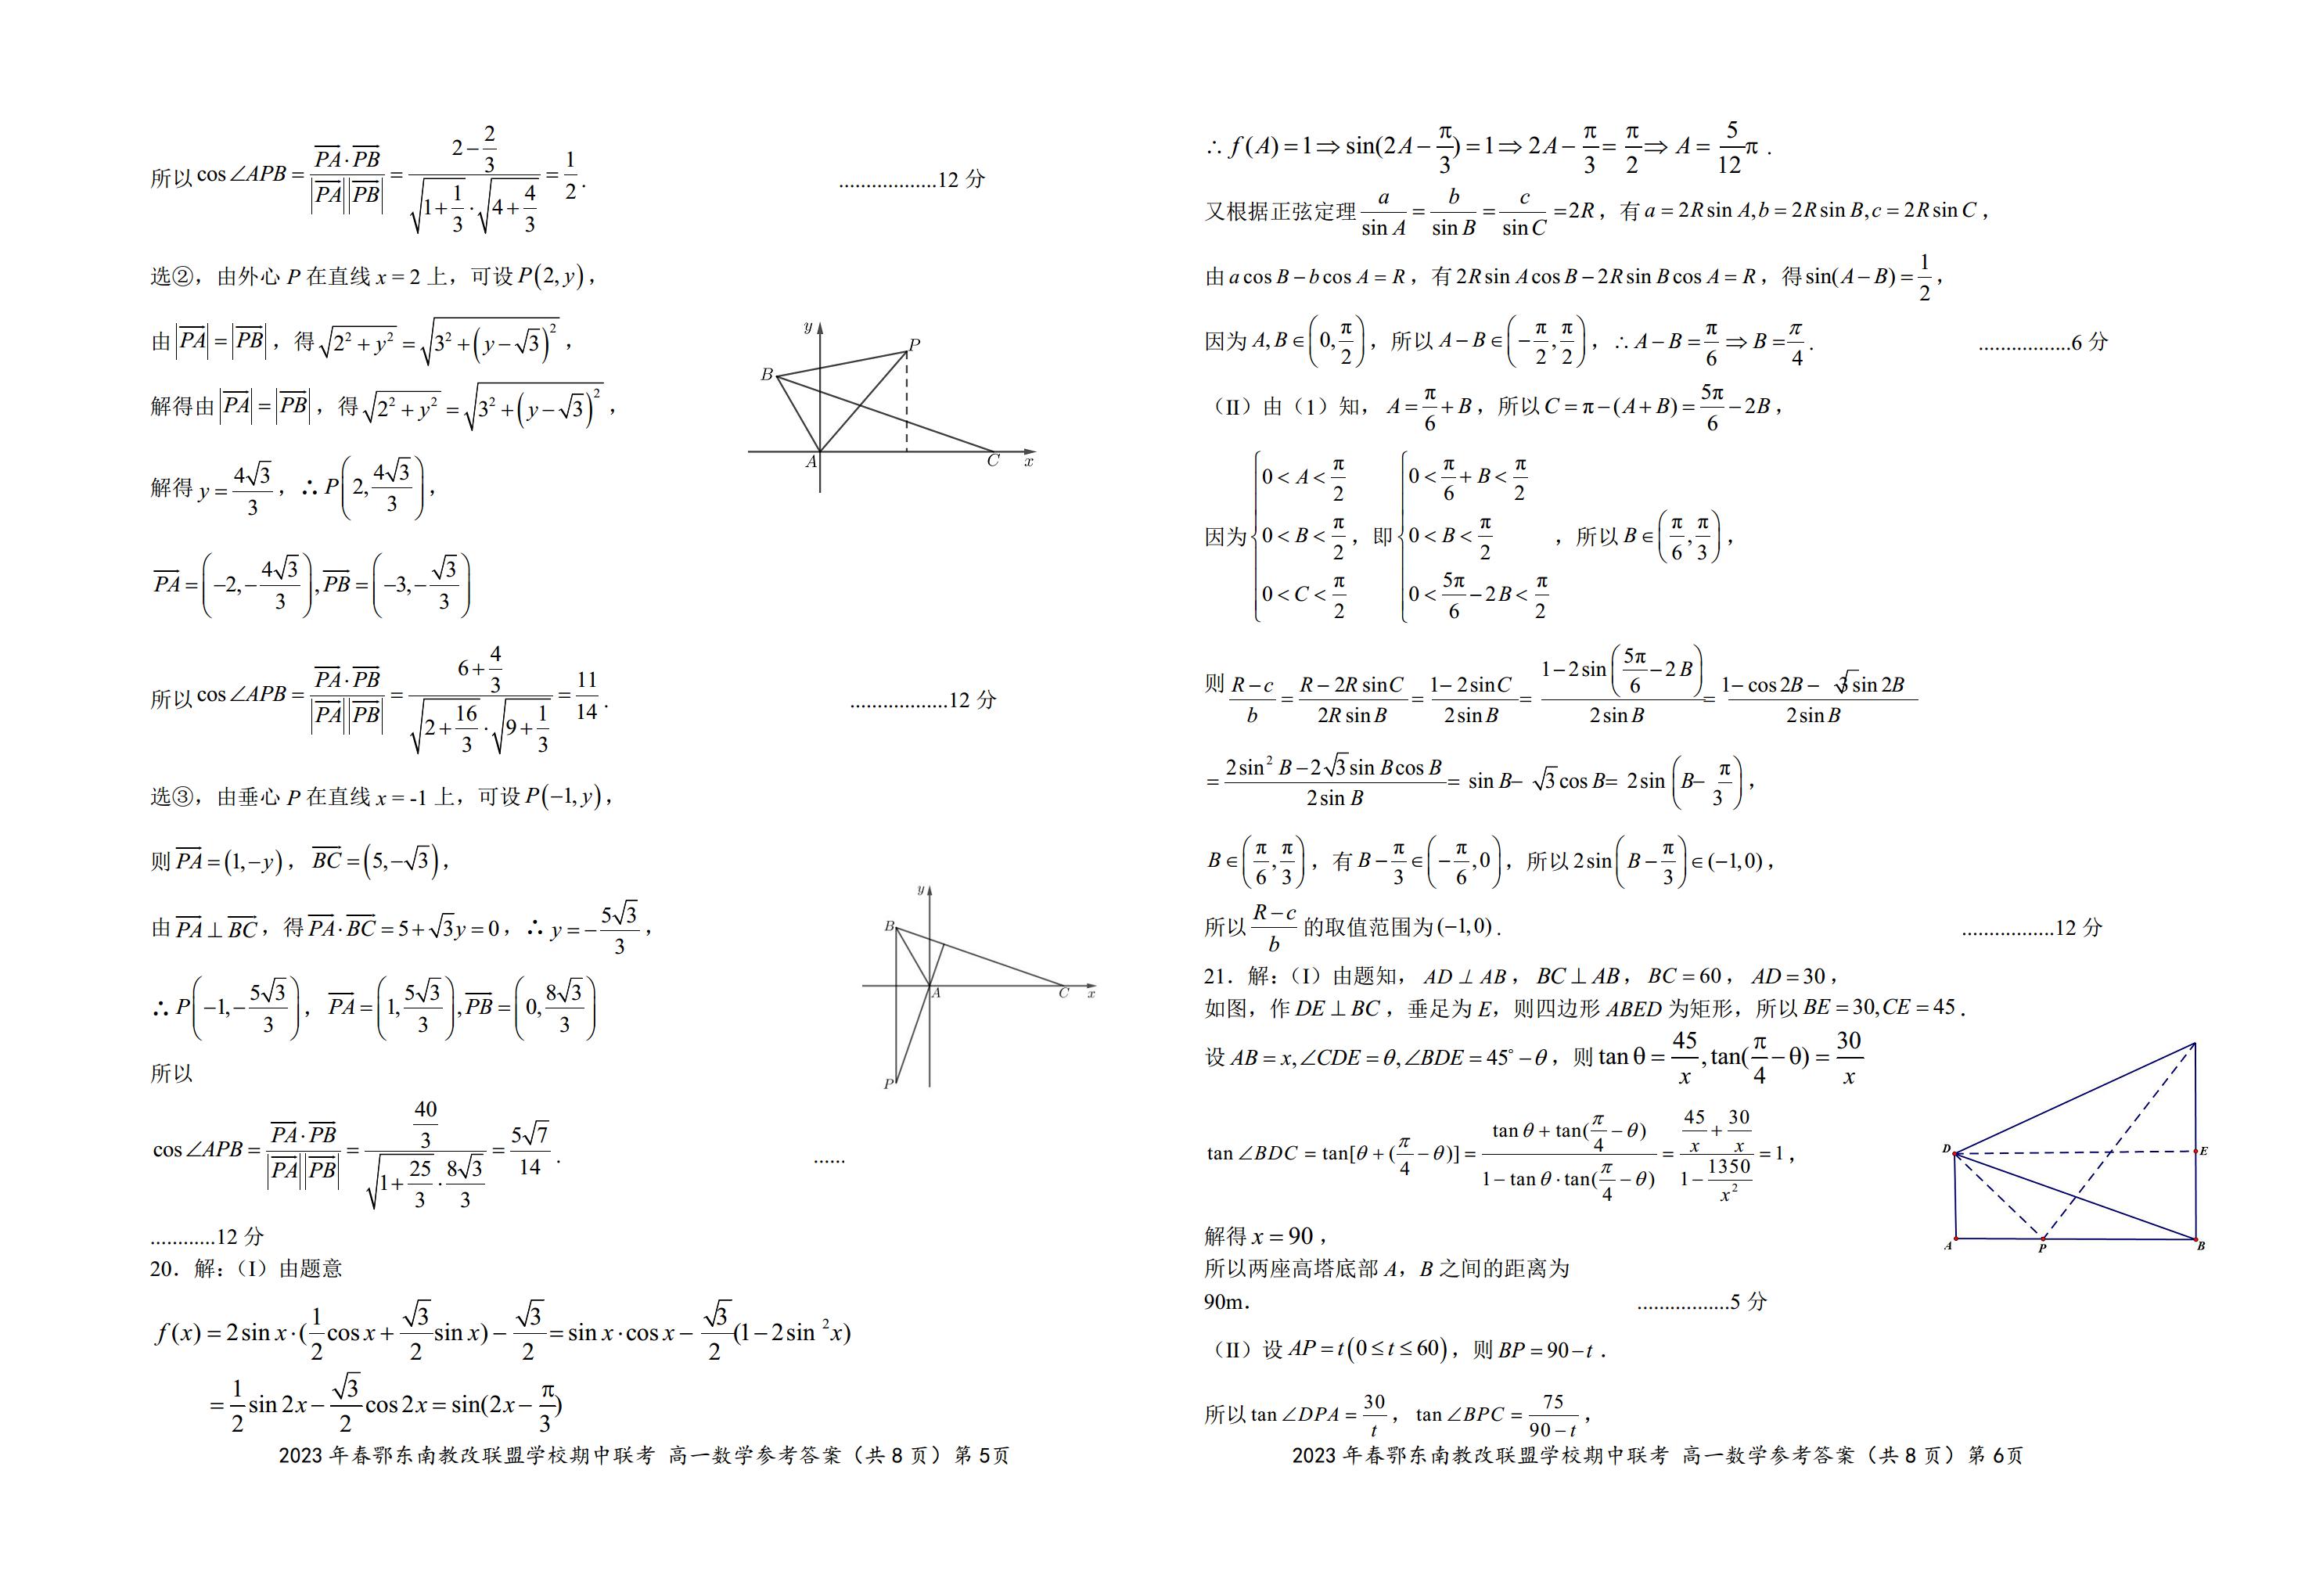 所以 $\cos\angle APB=\dfrac{\overrightarrow{PA}\cdot\overrightarrow{PB}}{|\overrightarrow{PA}||\overrightarrow{PB}|}=\dfrac{2-\dfrac{2}{3}}{\sqrt{1+\dfrac{1}{3}}\cdot\sqrt{4+\dfrac{4}{3}}}=\dfrac{1}{2}$. ..................12 分
选②，由外心 P 在直线 x = 2 上，可设 $P(2,y)$，
由 $|\overrightarrow{PA}|=|\overrightarrow{PB}|$，得 $\sqrt{2^2+y^2}=\sqrt{3^2+(y-\sqrt{3})^2}$，
解得由 $|\overrightarrow{PA}|=|\overrightarrow{PB}|$，得 $\sqrt{2^2+y^2}=\sqrt{3^2+(y-\sqrt{3})^2}$，
解得 $y=\dfrac{4\sqrt{3}}{3}$，∴ $P\left(2,\dfrac{4\sqrt{3}}{3}\right)$，
$\overrightarrow{PA}=\left(-2,-\dfrac{4\sqrt{3}}{3}\right),\overrightarrow{PB}=\left(-3,-\dfrac{\sqrt{3}}{3}\right)$
y
P
B
A
C
x
所以 $\cos\angle APB=\dfrac{\overrightarrow{PA}\cdot\overrightarrow{PB}}{|\overrightarrow{PA}||\overrightarrow{PB}|}=\dfrac{6+\dfrac{4}{3}}{\sqrt{2+\dfrac{16}{3}}\cdot\sqrt{9+\dfrac{1}{3}}}=\dfrac{11}{14}$. ..................12 分
选③，由垂心 P 在直线 x = -1 上，可设 $P(-1,y)$，
则 $\overrightarrow{PA}=(1,-y)$，$\overrightarrow{BC}=(5,-\sqrt{3})$，
由 $\overrightarrow{PA}\perp\overrightarrow{BC}$，得 $\overrightarrow{PA}\cdot\overrightarrow{BC}=5+\sqrt{3}y=0$，∴ $y=-\dfrac{5\sqrt{3}}{3}$，
∴ $P\left(-1,-\dfrac{5\sqrt{3}}{3}\right)$，$\overrightarrow{PA}=\left(1,\dfrac{5\sqrt{3}}{3}\right),\overrightarrow{PB}=\left(0,\dfrac{8\sqrt{3}}{3}\right)$
y
B
A
C
x
P
所以
$\cos\angle APB=\dfrac{\overrightarrow{PA}\cdot\overrightarrow{PB}}{|\overrightarrow{PA}||\overrightarrow{PB}|}=\dfrac{\dfrac{40}{3}}{\sqrt{1+\dfrac{25}{3}}\cdot\dfrac{8\sqrt{3}}{3}}=\dfrac{5\sqrt{7}}{14}$. ......
............12 分
20．解：（I）由题意
$f(x)=2\sin x\cdot(\dfrac{1}{2}\cos x+\dfrac{\sqrt{3}}{2}\sin x)-\dfrac{\sqrt{3}}{2}=\sin x\cdot\cos x-\dfrac{\sqrt{3}}{2}(1-2\sin^2 x)$
$=\dfrac{1}{2}\sin 2x-\dfrac{\sqrt{3}}{2}\cos 2x=\sin(2x-\dfrac{\pi}{3})$
2023 年春鄂东南教改联盟学校期中联考 高一数学参考答案（共 8 页）第 5页
∴ $f(A)=1\Rightarrow\sin(2A-\dfrac{\pi}{3})=1\Rightarrow 2A-\dfrac{\pi}{3}=\dfrac{\pi}{2}\Rightarrow A=\dfrac{5}{12}\pi$.
又根据正弦定理 $\dfrac{a}{\sin A}=\dfrac{b}{\sin B}=\dfrac{c}{\sin C}=2R$，有 $a=2R\sin A,b=2R\sin B,c=2R\sin C$，
由 $a\cos B-b\cos A=R$，有 $2R\sin A\cos B-2R\sin B\cos A=R$，得 $\sin(A-B)=\dfrac{1}{2}$，
因为 $A,B\in\left(0,\dfrac{\pi}{2}\right)$，所以 $A-B\in\left(-\dfrac{\pi}{2},\dfrac{\pi}{2}\right)$，∴ $A-B=\dfrac{\pi}{6}\Rightarrow B=\dfrac{\pi}{4}$. .................6 分
（II）由（1）知，$A=\dfrac{\pi}{6}+B$，所以 $C=\pi-(A+B)=\dfrac{5\pi}{6}-2B$，
因为 $\begin{cases}0<A<\dfrac{\pi}{2}\\0<B<\dfrac{\pi}{2}\\0<C<\dfrac{\pi}{2}\end{cases}$，即 $\begin{cases}0<\dfrac{\pi}{6}+B<\dfrac{\pi}{2}\\0<B<\dfrac{\pi}{2}\\0<\dfrac{5\pi}{6}-2B<\dfrac{\pi}{2}\end{cases}$，所以 $B\in\left(\dfrac{\pi}{6},\dfrac{\pi}{3}\right)$，
则 $\dfrac{R-c}{b}=\dfrac{R-2R\sin C}{2R\sin B}=\dfrac{1-2\sin C}{2\sin B}=\dfrac{1-2\sin\left(\dfrac{5\pi}{6}-2B\right)}{2\sin B}=\dfrac{1-\cos 2B-\sqrt{3}\sin 2B}{2\sin B}$
$=\dfrac{2\sin^2 B-2\sqrt{3}\sin B\cos B}{2\sin B}=\sin B-\sqrt{3}\cos B=2\sin\left(B-\dfrac{\pi}{3}\right)$，
$B\in\left(\dfrac{\pi}{6},\dfrac{\pi}{3}\right)$，有 $B-\dfrac{\pi}{3}\in\left(-\dfrac{\pi}{6},0\right)$，所以 $2\sin\left(B-\dfrac{\pi}{3}\right)\in(-1,0)$，
所以 $\dfrac{R-c}{b}$ 的取值范围为 $(-1,0)$. .................12 分
21．解：（I）由题知，$AD\perp AB$，$BC\perp AB$，$BC=60$，$AD=30$，
如图，作 $DE\perp BC$，垂足为 E，则四边形 ABED 为矩形，所以 $BE=30,CE=45$．
设 $AB=x,\angle CDE=\theta,\angle BDE=45^\circ-\theta$，则 $\tan\theta=\dfrac{45}{x},\tan(\dfrac{\pi}{4}-\theta)=\dfrac{30}{x}$
$\tan\angle BDC=\tan[\theta+(\dfrac{\pi}{4}-\theta)]=\dfrac{\tan\theta+\tan(\dfrac{\pi}{4}-\theta)}{1-\tan\theta\cdot\tan(\dfrac{\pi}{4}-\theta)}=\dfrac{\dfrac{45}{x}+\dfrac{30}{x}}{1-\dfrac{1350}{x^2}}=1$，
D
E
A
P
B
解得 $x=90$，
所以两座高塔底部 A，B 之间的距离为
90m． .................5 分
（II）设 $AP=t(0\le t\le 60)$，则 $BP=90-t$．
所以 $\tan\angle DPA=\dfrac{30}{t}$，$\tan\angle BPC=\dfrac{75}{90-t}$，
2023 年春鄂东南教改联盟学校期中联考 高一数学参考答案（共 8 页）第 6页